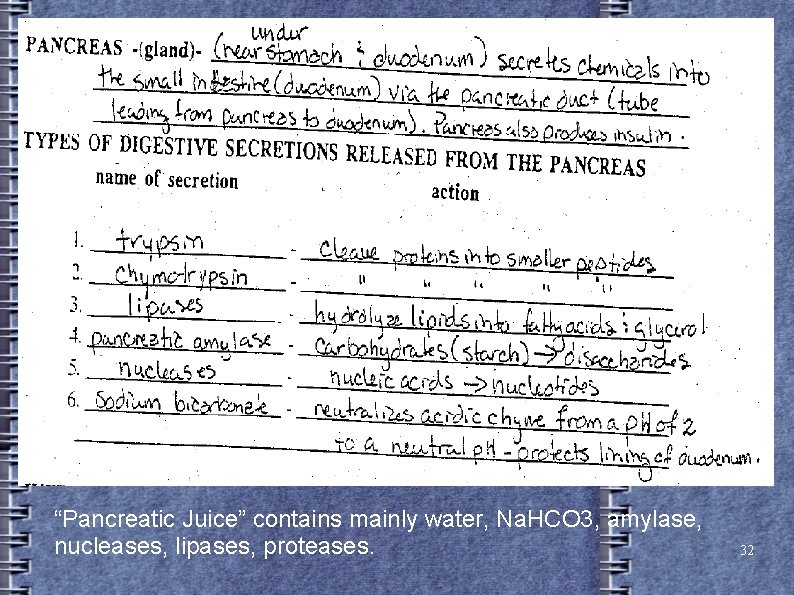 under
PANCREAS -(gland)- (near stomach & duodenum) secretes chemicals into
the small intestine (duodenum) via the pancreatic duct (tube
leading from pancreas to duodenum). Pancreas also produces insulin.
TYPES OF DIGESTIVE SECRETIONS RELEASED FROM THE PANCREAS
name of secretion action
1. trypsin - cleave proteins into smaller peptides
2. chymotrypsin - " " " " "
3. lipases - hydrolyze lipids into fatty acids & glycerol
4. pancreatic amylase - carbohydrates (starch) → disaccharides
5. nucleases - nucleic acids → nucleotides
6. Sodium bicarbonate - neutralizes acidic chyme from a pH of 2
to a neutral pH - protects lining of duodenum.
“Pancreatic Juice” contains mainly water, Na.HCO3, amylase,
nucleases, lipases, proteases.
32